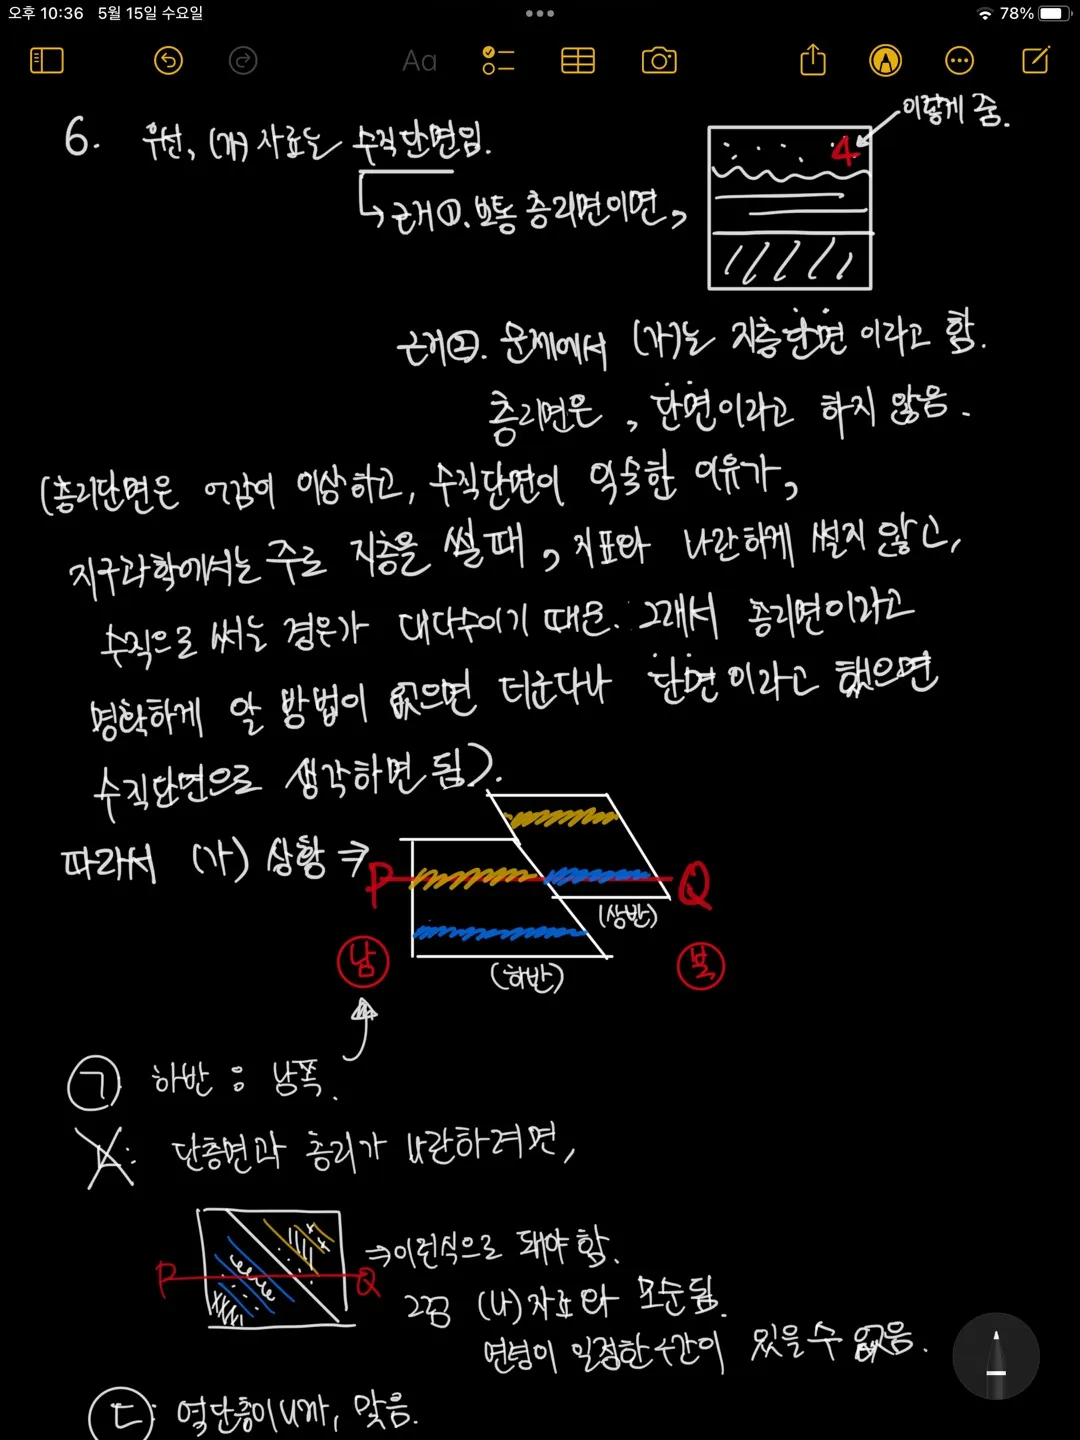 오후 10:36 5월 15일 수요일
78%
Aa
이렇게 줌.
4
6. 우선, (가) 자료는 수직단면임.
↳ 근거①. 보통 층리면이면,
근거②. 문제에서 (가)는 지층단면이라고 함.
층리면은, 단면이라고 하지 않음.
(층리단면은 어감이 이상하고, 수직단면이 익숙한 이유가,
지구과학에서는 주로 지층을 썰 때, 지표와 나란하게 썰지 않고,
수직으로 써는 경우가 대다수이기 때문. 그래서 층리면이라고
명확하게 알 방법이 없으면 더군다나 단면이라고 했으면
수직단면으로 생각하면 됨).
따라서 (가) 상황 ⇒
P Q
(상반)
남 북
(하반)
ㄱ 하반 : 남쪽.
ㄴ: 단층면과 층리가 나란하려면,
P Q
⇒ 이런식으로 돼야 함.
그럼 (나) 자료와 모순됨.
연령이 일정한 구간이 있을 수 없음.
ㄷ: 역단층이니까, 맞음.